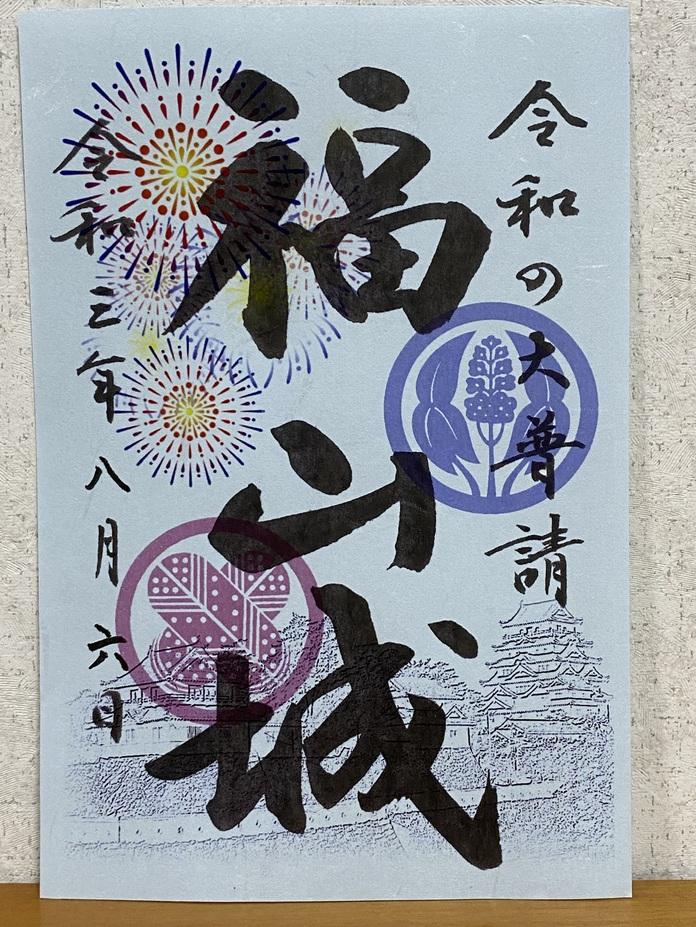 令和の大普請
福山城
令和三年八月六日